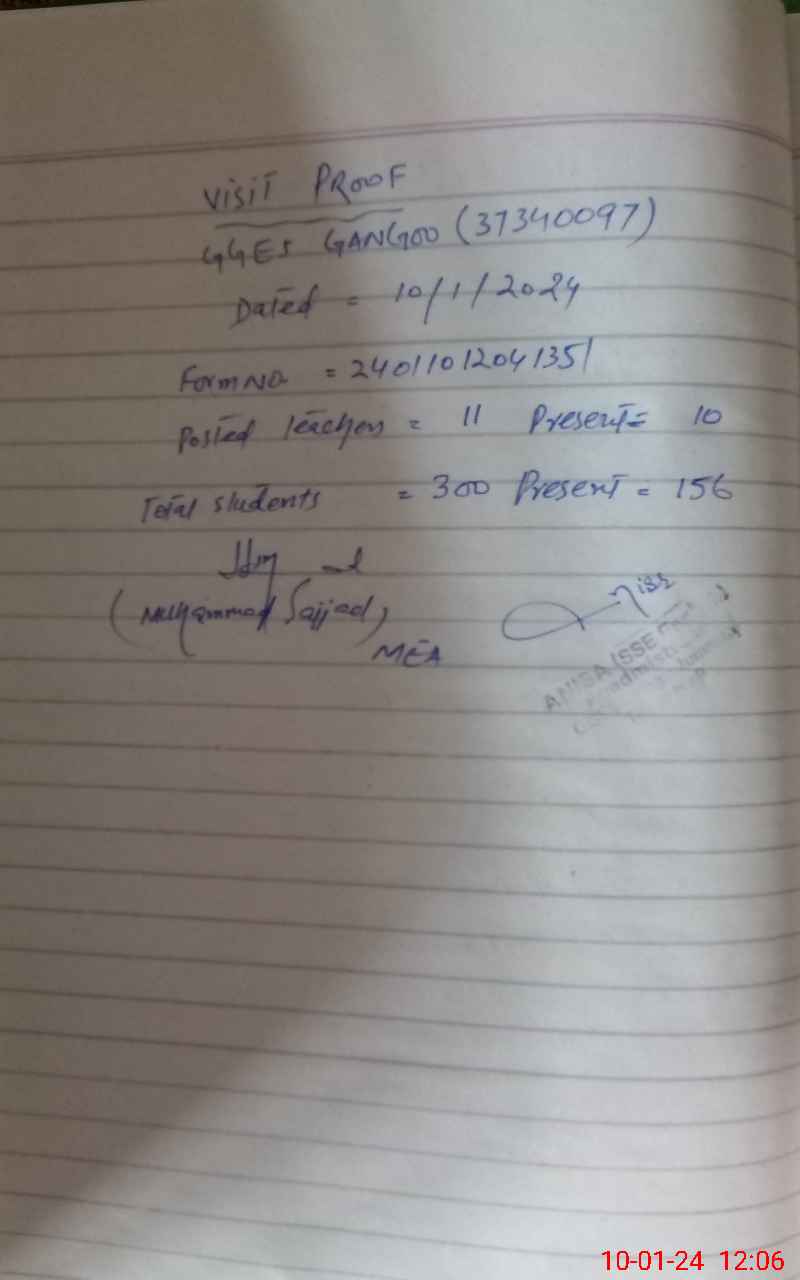 VISIT PROOF
GGES GANGOO (37340097)
Dated = 10/1/2024
Form No = 24011012041351
Posted teachers = 11 Present = 10
Total students = 300 Present = 156
(Muhammad Sajjad)
MEA
ANISA (SSE
10-01-24 12:06